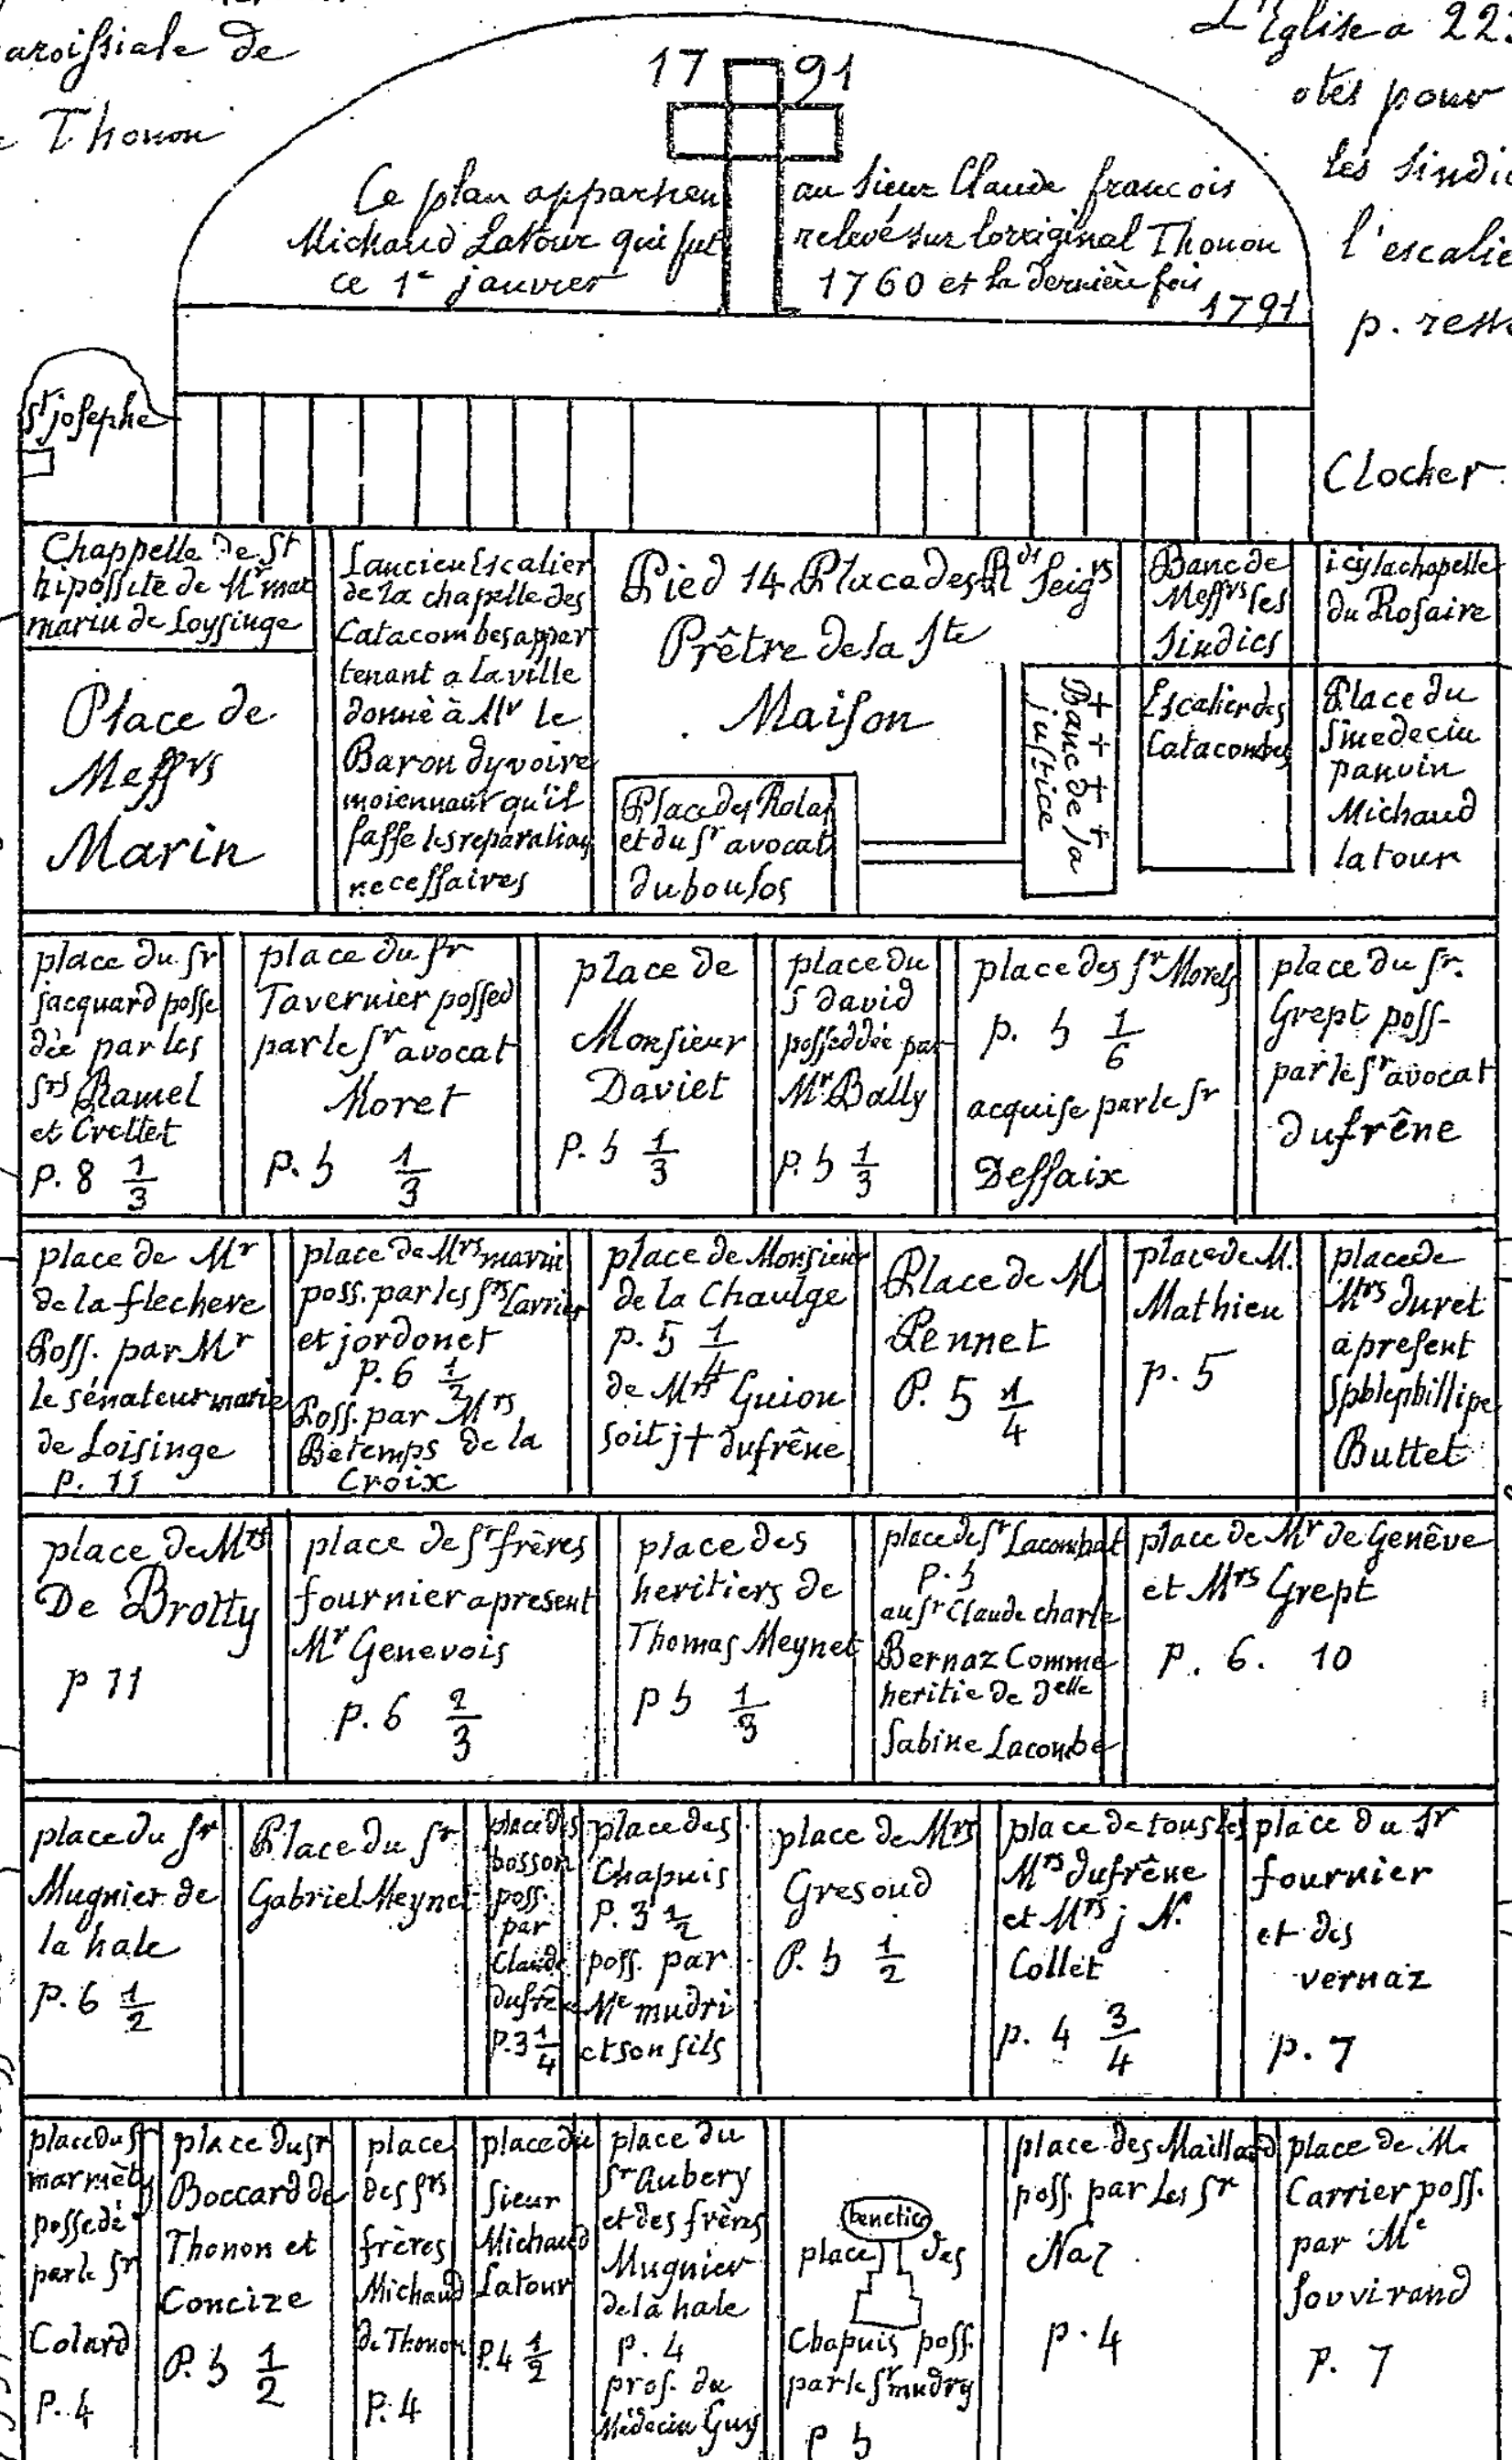 aroissiale de
Thonon
L'Eglise a 22
otés pour
les sindi
l'escalie
p. rest
17 91
Ce plan appartien au sieur Claude francois
Michaud Latour qui fut relevé sur lorriginal Thonon
ce 1e janvier 1760 et la dernière fois
1791
St josephe
Clocher
Chappelle de St
hipossite de Mr mar
marin de Loysinge
Place de
Messrs
Marin
Lancien Escalier
de la chapelle des
Catacombes appar
tenant a la ville
donnè à Mr le
Baron dyvoire
moiennant qu'il
fasse les reparations
necessaires
Pied 14 Place des Rds Seigrs
Prêtre de la Ste
Maison
Place des Rolas
et du Sr avocat
duboulos
Banc de la
justice
Banc de
Messrs les
Sindics
Escalier des
Catacombes
icy la chapelle
du Rosaire
Place du
S medecin
panvin
Michaud
latour
place du Sr
jacquard posse
dèe par les
Srs Ramel
et Crottet
p. 8 1/3
place du Sr
Tavernier possed
par le Sr avocat
Moret
p. 5 1/3
place de
Monsieur
Daviet
p. 5 1/3
place du
S david
posseddée par
Mr Bally
p. 5 1/3
place des Sr Morels
p. 5 1/6
acquise par le Sr
Dessaix
place du Sr.
Grept poss-
par le Sr avocat
dufrêne
place de Mr
de la flechere
Poss. par Mr
le sénateur marin
de Loisinge
p. 11
place de Mrs marin
poss. par les Srs Carrier
et jordonet
p. 6 1/2
Poss. par Mrs
Betemps de la
Croix
place de Monsieur
de la Chaulge
p. 5 1/4
de Mrs Guion
soit j+ dufrêne
Place de M
Pennet
P. 5 1/4
place de M.
Mathieu
p. 5
place de
Mrs duret
apresent
Spble phillipe
Buttet
place de Mrs
De Brotty
p 11
place de Sr frères
fournier apresent
Mr Genevois
p. 6 2/3
place des
heritiers de
Thomas Meynet
p 5 1/3
place de Sr Lacombat
p. 5
au Sr Claude charle
Bernaz Comme
heritie de delle
Sabine Lacombe
place de Mr de Genêve
et Mrs Grept
p. 6. 10
place du Sr
Mugnier de
la hale
p. 6 1/2
Place du Sr
Gabriel Meynet
place des
bosson
poss.
par
Claude
dufrêne
p. 3 1/4
place des
Chapuis
p. 3 1/2
poss. par
Me mudri
et son fils
place de Mrs
Gresoud
P. 5 1/2
place de tous les
Mrs dufrêne
et Mrs j N.
Collet
p. 4 3/4
place du Sr
fournier
et des
vernaz
p. 7
place du Sr
marmèty
possedé
par le Sr
Colard
p. 4
place du Sr
Boccard de
Thonon et
Concize
P. 5 1/2
place
des Srs
frères
Michaud
de Thonon
p. 4
place du
Sieur
Michaud
Latour
p. 4 1/2
place du
Sr Aubery
et des frères
Mugnier
de la hale
p. 4
prof. du
Médecin Guy
benetier
place des
Chapuis poss.
par le Sr mudry
p 5
place des Maillard
poss. par Les Sr
Naz
p. 4
place de M.
Carrier poss.
par Me
Souvirand
p. 7